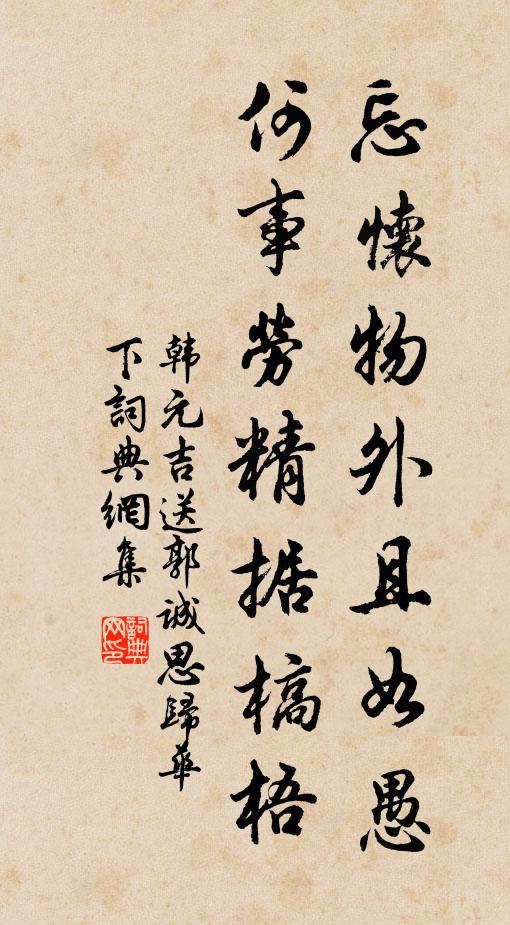 忘懷物外且如愚
何事勞精据槁梧
韩元吉送郭诚思歸華
下詞典網集
詞典网印